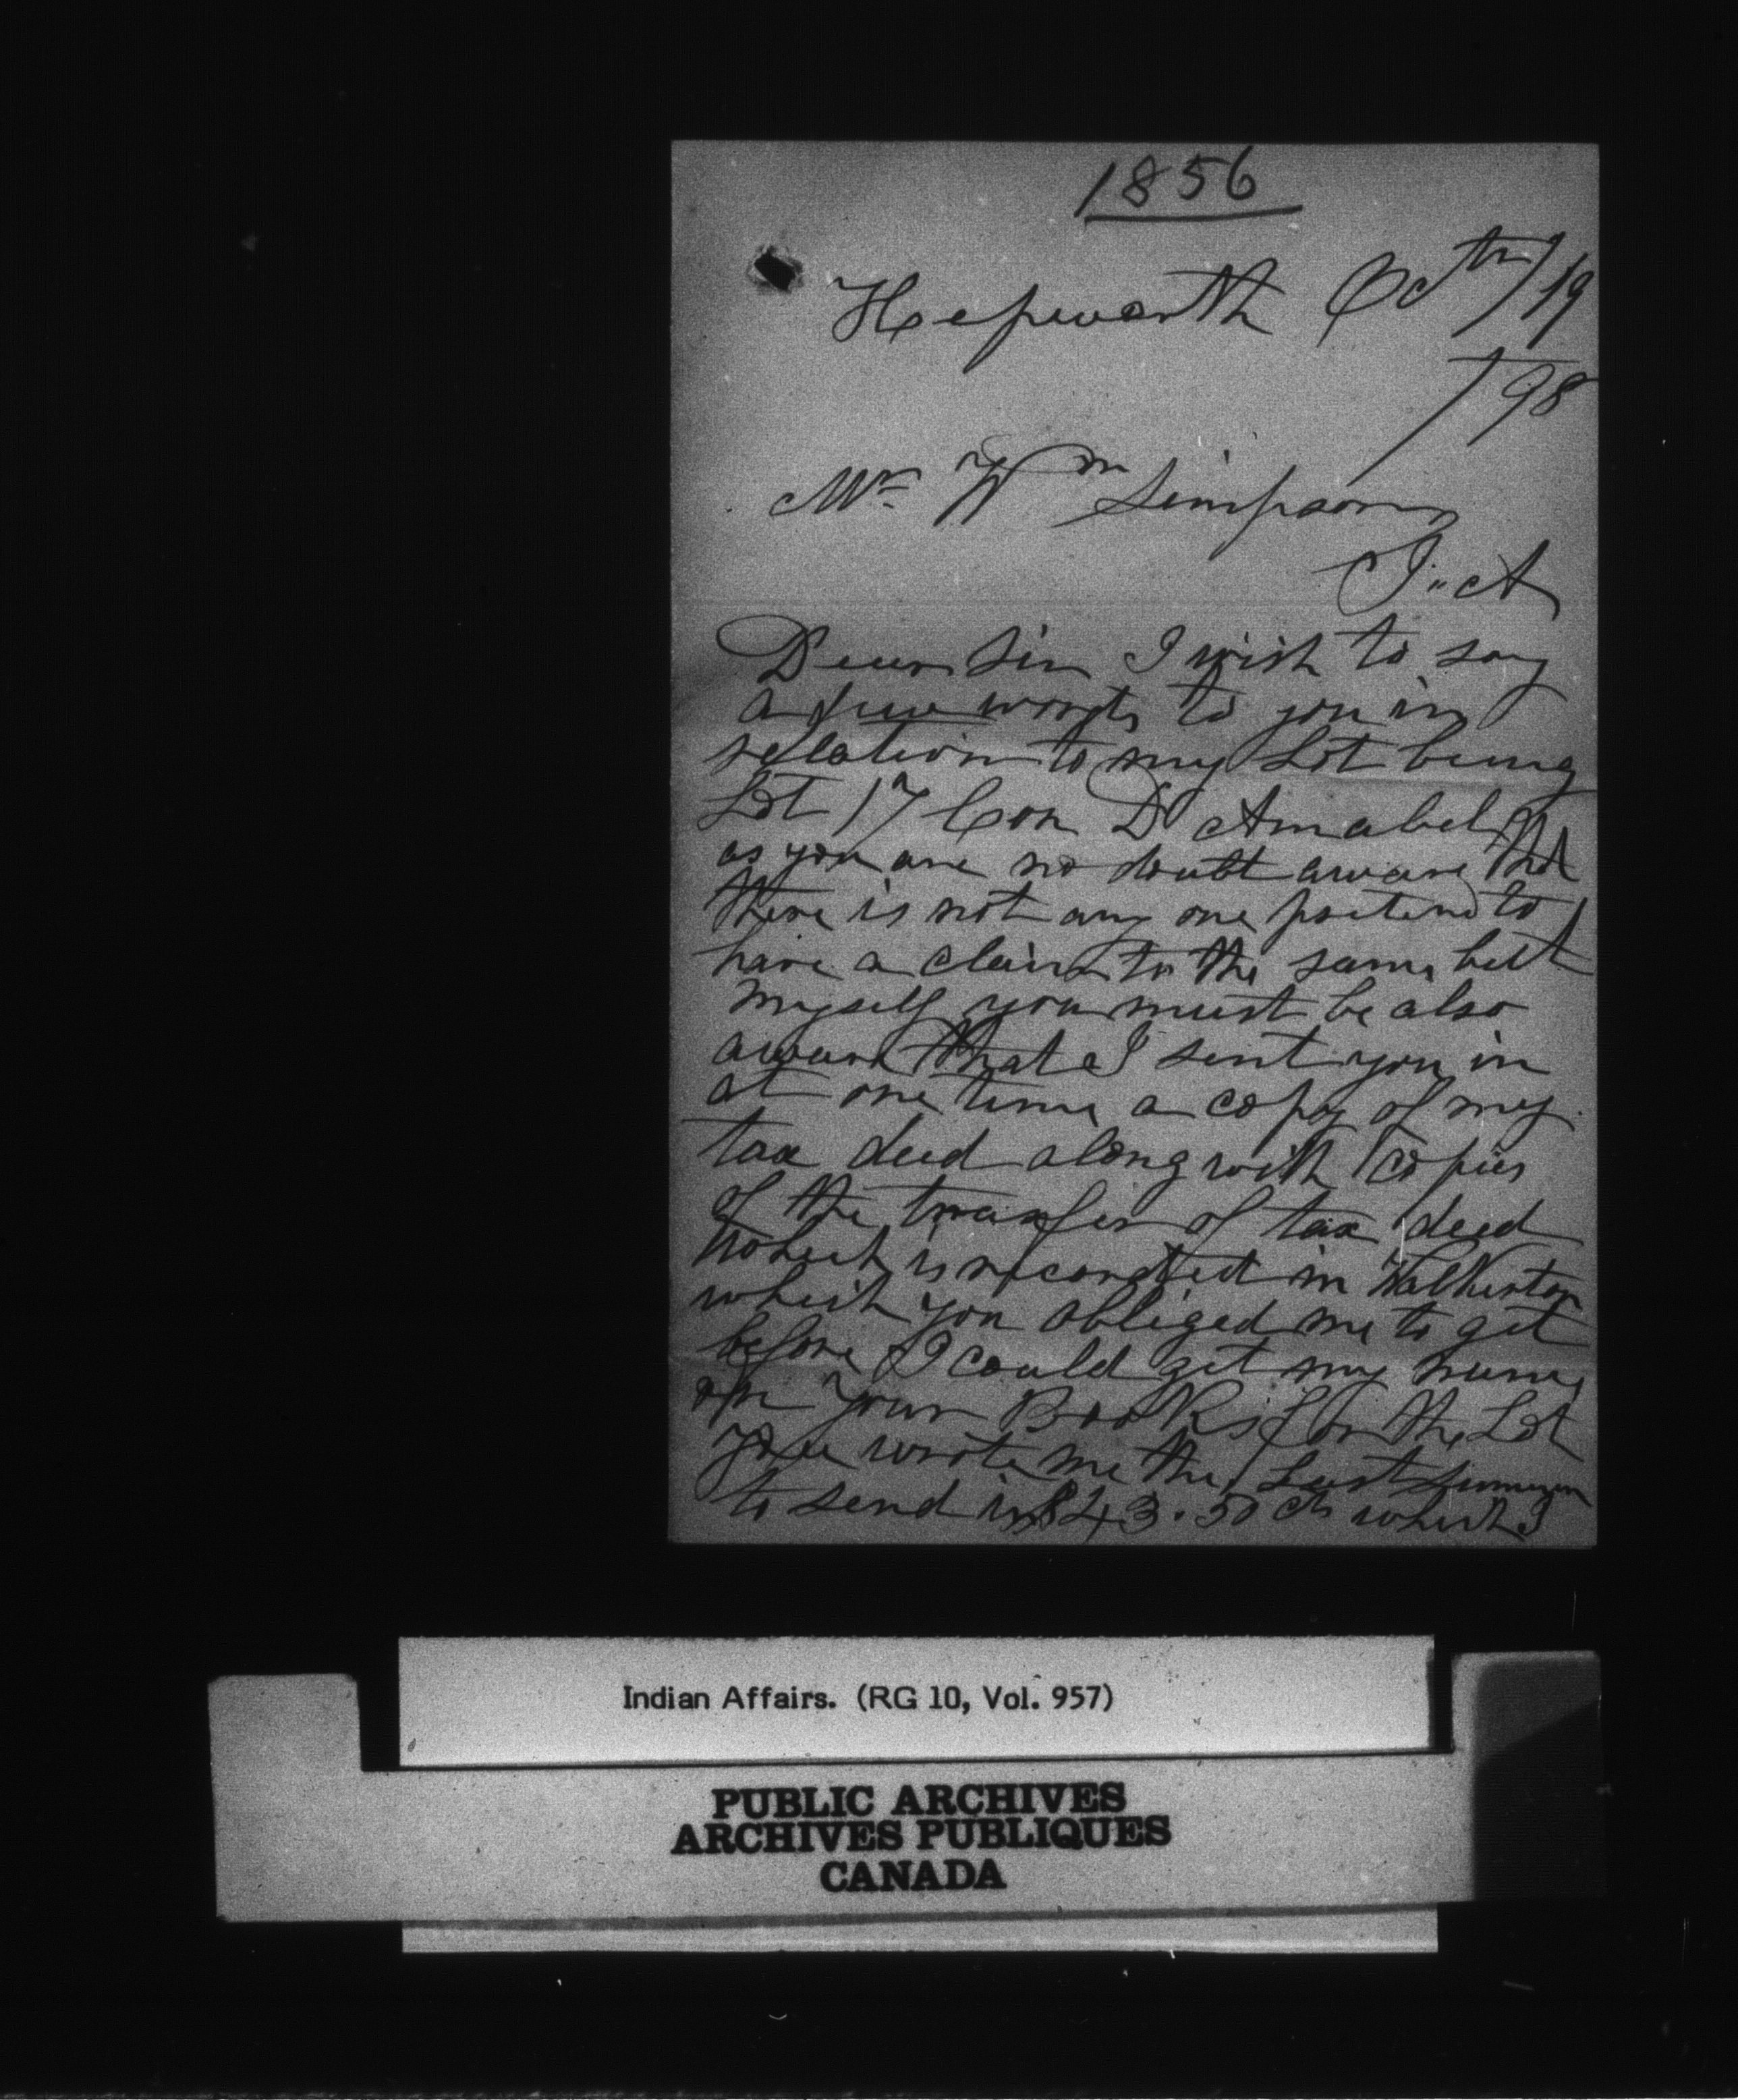 1856
Hepworth Octr/19
/98
Mr Wm Simpson
I"A
Dear Sir I wish to say
a few words to you in
relation to my Lot being
Lot 17 Con D Amabel
as you are no doubt aware that
there is not any one pretend to
have a claim to the same but
myself you must be also
aware that I sent you in
at one time a copy of my
tax deed along with copies
of the transfer of tax deed
which is recorded in Walkerton
which you obliged me to get
before I could get my name
on your Books for the Lot
you wrote me the Last Summer
to send in $43.50 cts which I
Indian Affairs. (RG 10, Vol. 957)
PUBLIC ARCHIVES
ARCHIVES PUBLIQUES
CANADA